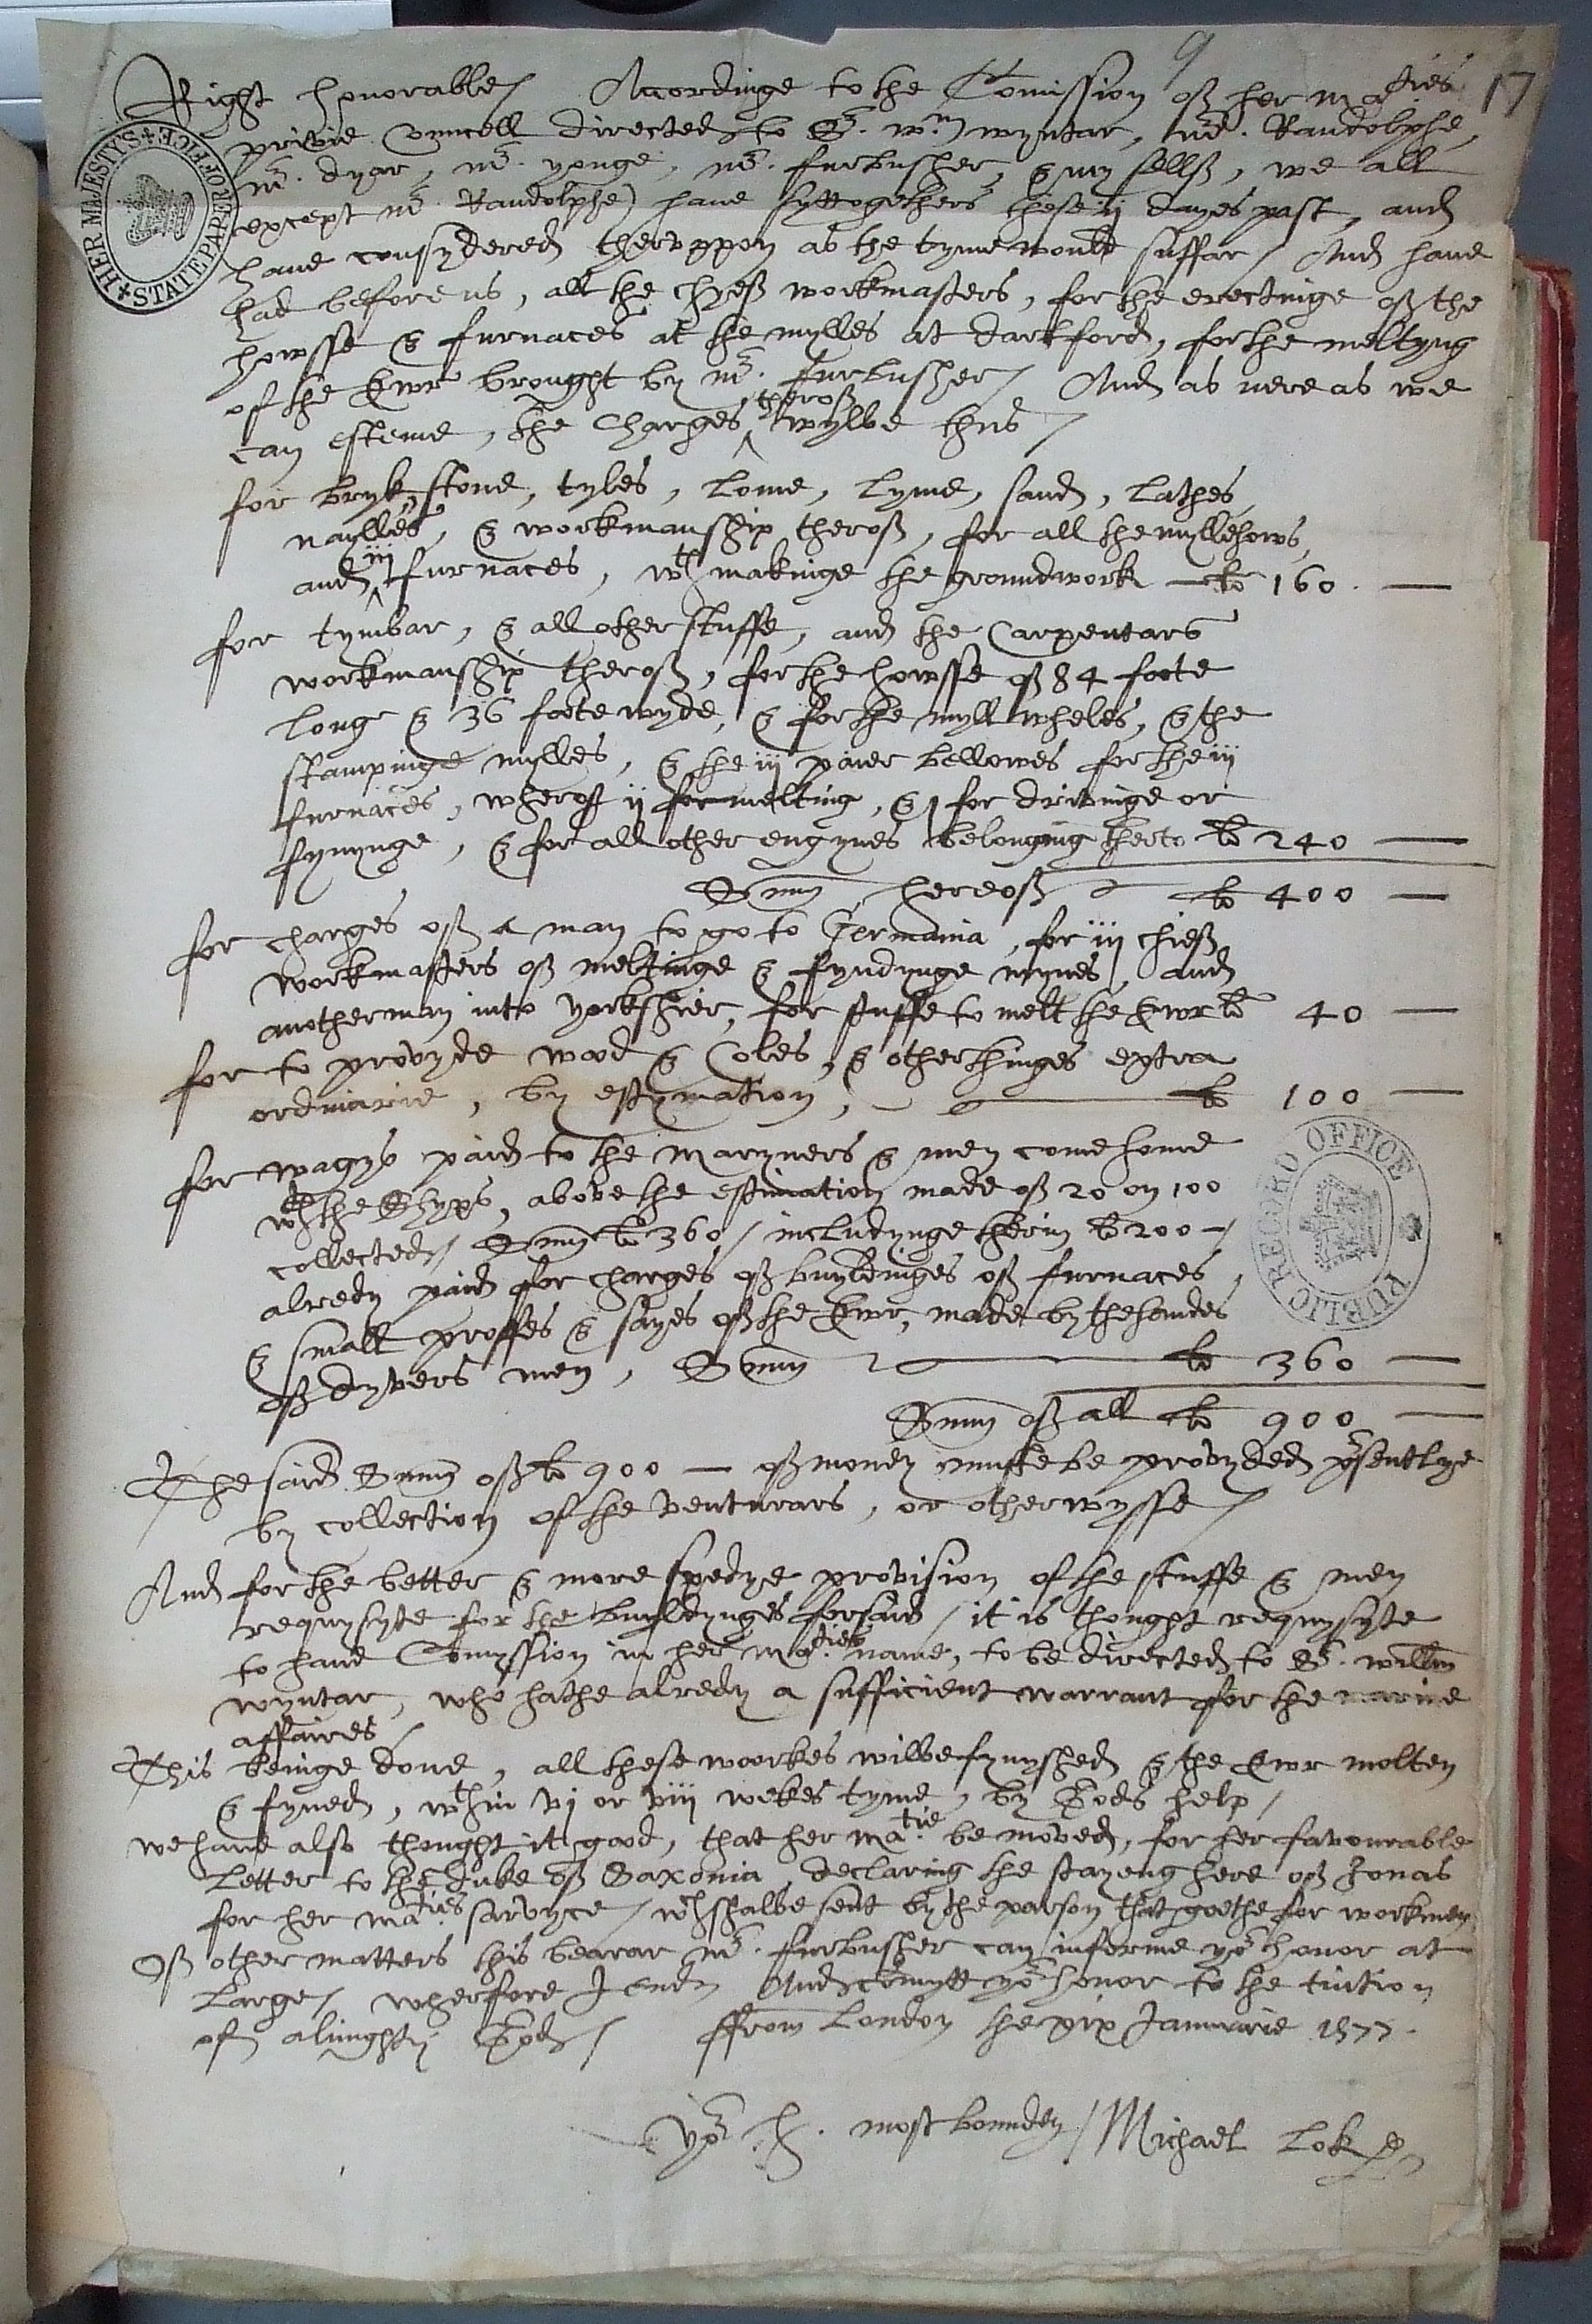 9
17
Right honorable / Accordinge to the Comission of her maties
privie councell directed to Sr. Wm wyntar, mr. Randolphe,
mr. dyar, mr. yonge, mr. furbusher, & my sellf, we all
except mr Randolphe) have syttogethers these ij dayes past, and
have consydered theruppon as the tyme would suffar / And have
had before us, all the chyef workmasters, for the erectinge of the
howsse & furnaces at the mylles at dartford, for the meltyng
of the Ewr brought by mr. furbusher / And as nere as we
can esteme, the Charges ^ therof wylbe thus /
for bryk, stone, tyles, lome, lyme, sand, lathes,
naylles, & workmanship therof, for all the myllehows,
and ^ iij furnaces, wth makinge the groundwork — lb 160. —
for tymbar, & all other stuffe, and the Carpentars
workmanship therof, for the howsse of 84 foote
longe & 36 foote wyde, & for the myll wheles, & the
stampinge mylles, & the iij paier bellowes for the iij
furnaces, wherof ij for melting, & j for drivinge or
fynynge, & for all other engynes belonging therto lb 240 —
Somm hereof lb 400 —
for charges of a man to go to Germania, for iij chief
workmasters of meltinge & fyndynge mynes, and
another man into yorkshier, for stuffe to melt the Ewr lb 40 —
for to provyde wood & Coles, & other thinges extra
ordinarie, by estymation, — lb 100 —
for wagys paid to the maryners & men come home
wth the Shyps, above the estimation made of 20 on 100
collected / Somm lb 360 / includynge therin lb 200 — /
alredy paid for charges of buyldinges of furnaces,
& small proffes & sayes of the Ewr, made by the handes
of dyvers men, Somm — lb 360 —
Somm of all lb 900 —
The said Somm of lb 900 — of money muste be provyded presentlye
by collection of the venturars, or otherwysse /
And for the better & more spedye provision of the stuffe & men
requysyte for the buyldynges forsaid / it is thought requysyte
to have Comyssion in her maties name, to be directed to Sr. willm
wyntar, who hathe alredy a sufficient warrant for the marine
affaires /
This beinge done, all these woorkes wilbe fynyshed & the Ewr molten
& fyned, wthin vj or viij wekes tyme, by Gods help /
we have also thought it good, that her matie be moved, for her favourable
letter to the duke of Saxonia, declaring the stayeng here of Jonas
for her maties sarvyce / wch shalbe sent by the parson that goethe for workmen
Of other matters this bearar mr. furbusher can informe yor honor at
large / wherfore I end / And comytt yor honor to the tuition
of almighty God / ffrom London the xix Januarie 1577.
yor h. most bounden / Michael Lok
HER MAJESTY'S STATE PAPER OFFICE
PUBLIC RECORD OFFICE